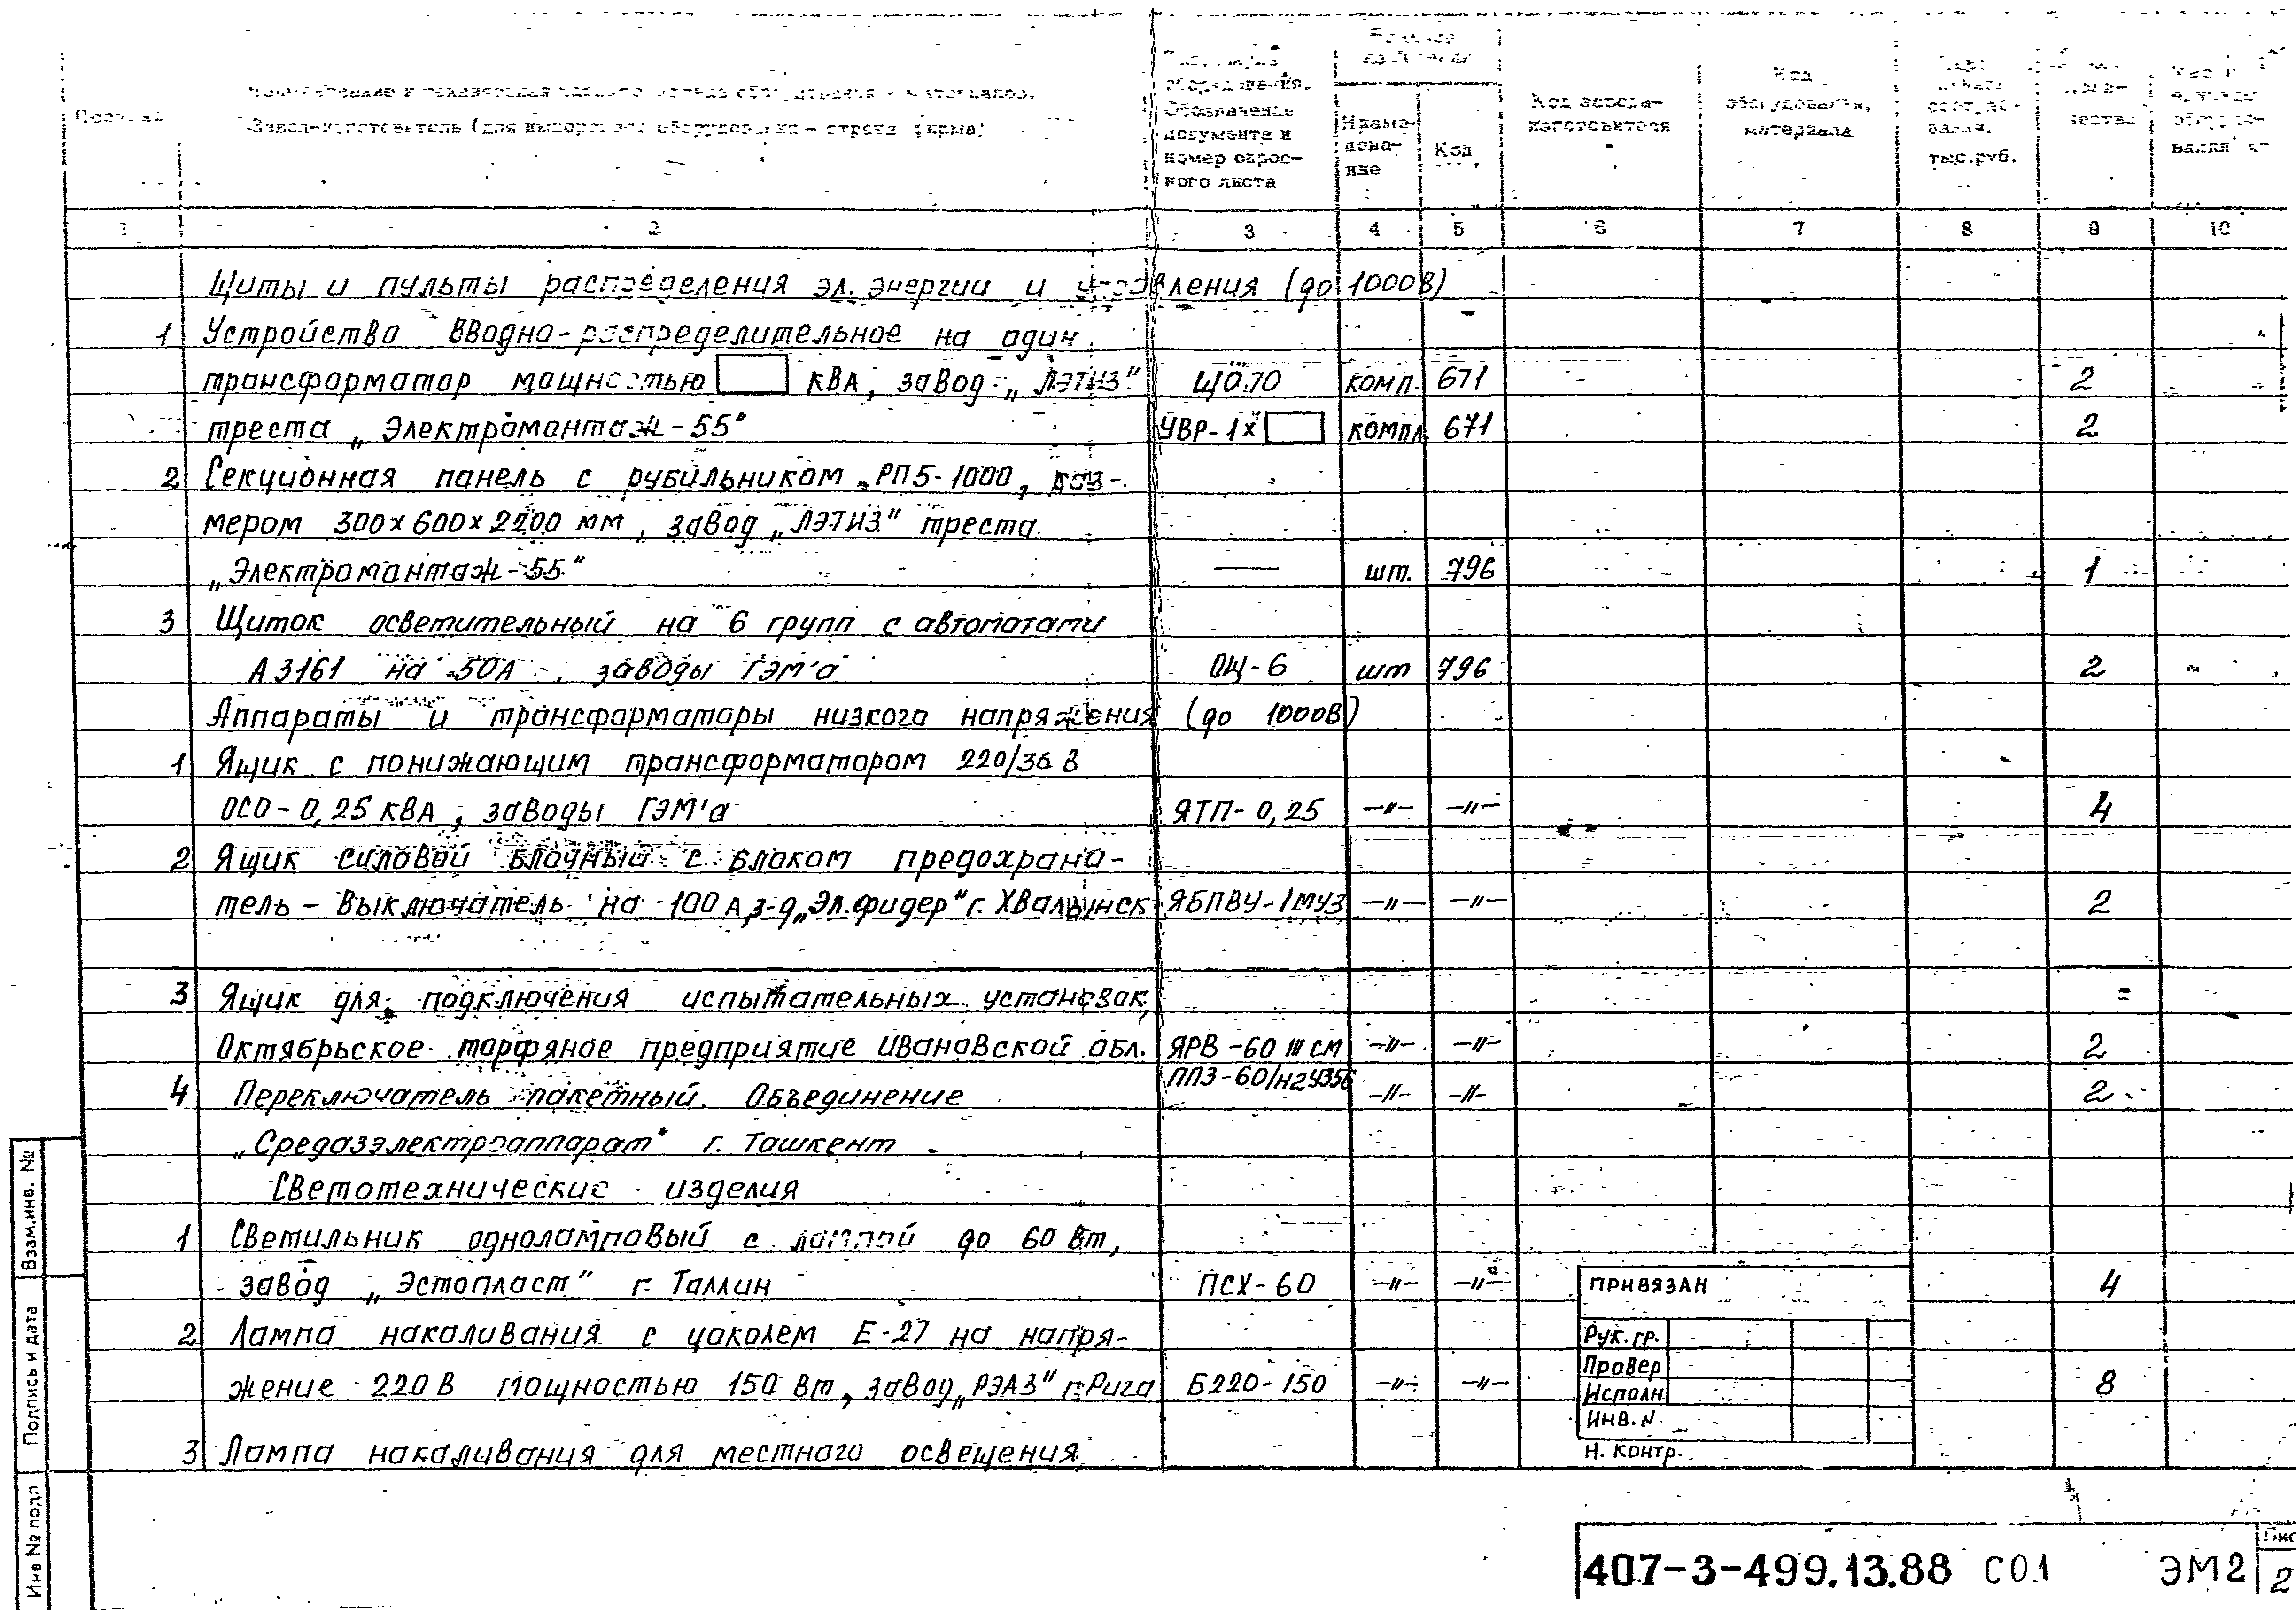 Позиция
Наименование и техническая характеристика оборудования и материалов.
Завод-изготовитель (для импортного оборудования – страна, фирма)
оборудования.
Обозначение
документа и
номер опрос-
ного листа
Наиме-
нова-
ние
Код
Код завода-
изготовителя
Код
оборудования,
материала
тыс.руб.
чество
1 2 3 4 5 6 7 8 9 10
Щиты и пульты распределения эл. энергии и управления (до 1000В)
1 Устройство вводно-распределительное на один
трансформатор мощностью КВА, завод „ЛЭТИЗ" ЩО70 комп. 671 2
треста „Электромонтаж-55" УВР-1х компл. 671 2
2 Секционная панель с рубильником РП5-1000, раз-
мером 300х600х2200 мм, завод „ЛЭТИЗ" треста
„Электромонтаж-55" — шт. 796 1
3 Щиток осветительный на 6 групп с автоматами
А3161 на 50А, заводы ГЭМ'а ОЩ-6 шт 796 2
Аппараты и трансформаторы низкого напряжения (до 1000В)
1 Ящик с понижающим трансформатором 220/36 В
ОСО-0,25 КВА, заводы ГЭМ'а ЯТП-0,25 –"– –"– 4
2 Ящик силовой блочный с блоком предохрани-
тель – выключатель на 100А, з-д „Эл.фидер" г. Хвалынск ЯБПВУ-1МУ3 –"– –"– 2
3 Ящик для подключения испытательных установок,
Октябрьское торфяное предприятие Ивановской обл. ЯРВ-60 III СМ –"– –"– 2
4 Переключатель пакетный. Объединение ПП3-60/Н2У356 –"– –"– 2
„Средазэлектроаппарат" г. Ташкент
Светотехнические изделия
1 Светильник одноламповый с лампой до 60 Вт,
завод „Эстопласт" г. Таллин ПСХ-60 –"– –"– 4
2 Лампа накаливания с цоколем Е-27 на напря-
жение 220В мощностью 150 Вт, завод „РЭАЗ" г.Рига Б220-150 –"– –"– 8
3 Лампа накаливания для местного освещения
ПРИВЯЗАН
Рук.гр.
Провер
Исполн
Инв.N.
Н. контр.
Взам.инв. №
Подпись и дата
Инв № подл
407-3-499.13.88 СО1 ЭМ2
2